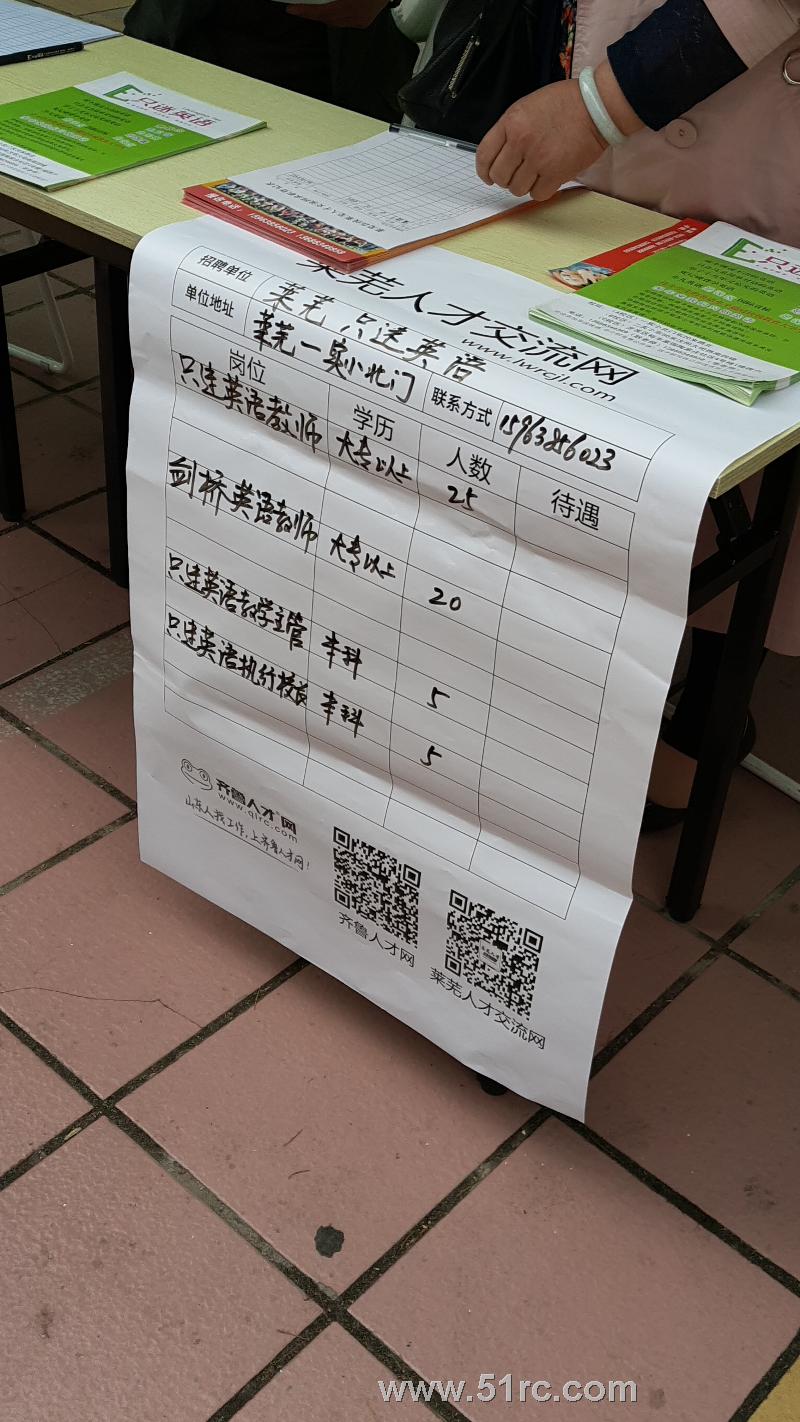 只迷英语
莱芜人才交流网
www.lwrcjl.com
招聘单位 莱芜只迷英语
单位地址 莱芜一实小北门 联系方式 15963856023
岗位 学历 人数 待遇
只迷英语教师 大专以上 25
剑桥英语教师 大专以上 20
只迷英语教学主管 本科 5
只迷英语执行校长 本科 5
齐鲁人才网
www.qlrc.com
山东人找工作,上齐鲁人才网!
齐鲁人才网
莱芜人才交流网
www.51rc.com